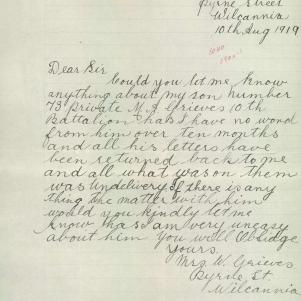 Byrne Street
Wilcannia
10th Aug 1919
Dear Sir
Could you let me know
anything about my son number
73 Private M. A Grieves 10th
Battalion has I have no word
from him over ten months
and all his letters have
been returned back to me
and all what was on them
was Undelivery if there is any
thing the matter with him
would you kindly let me
know has am very uneasy
about him You will Oblidge
Yours.
Mrs W. Grieves
Byrne St
Wilcannia